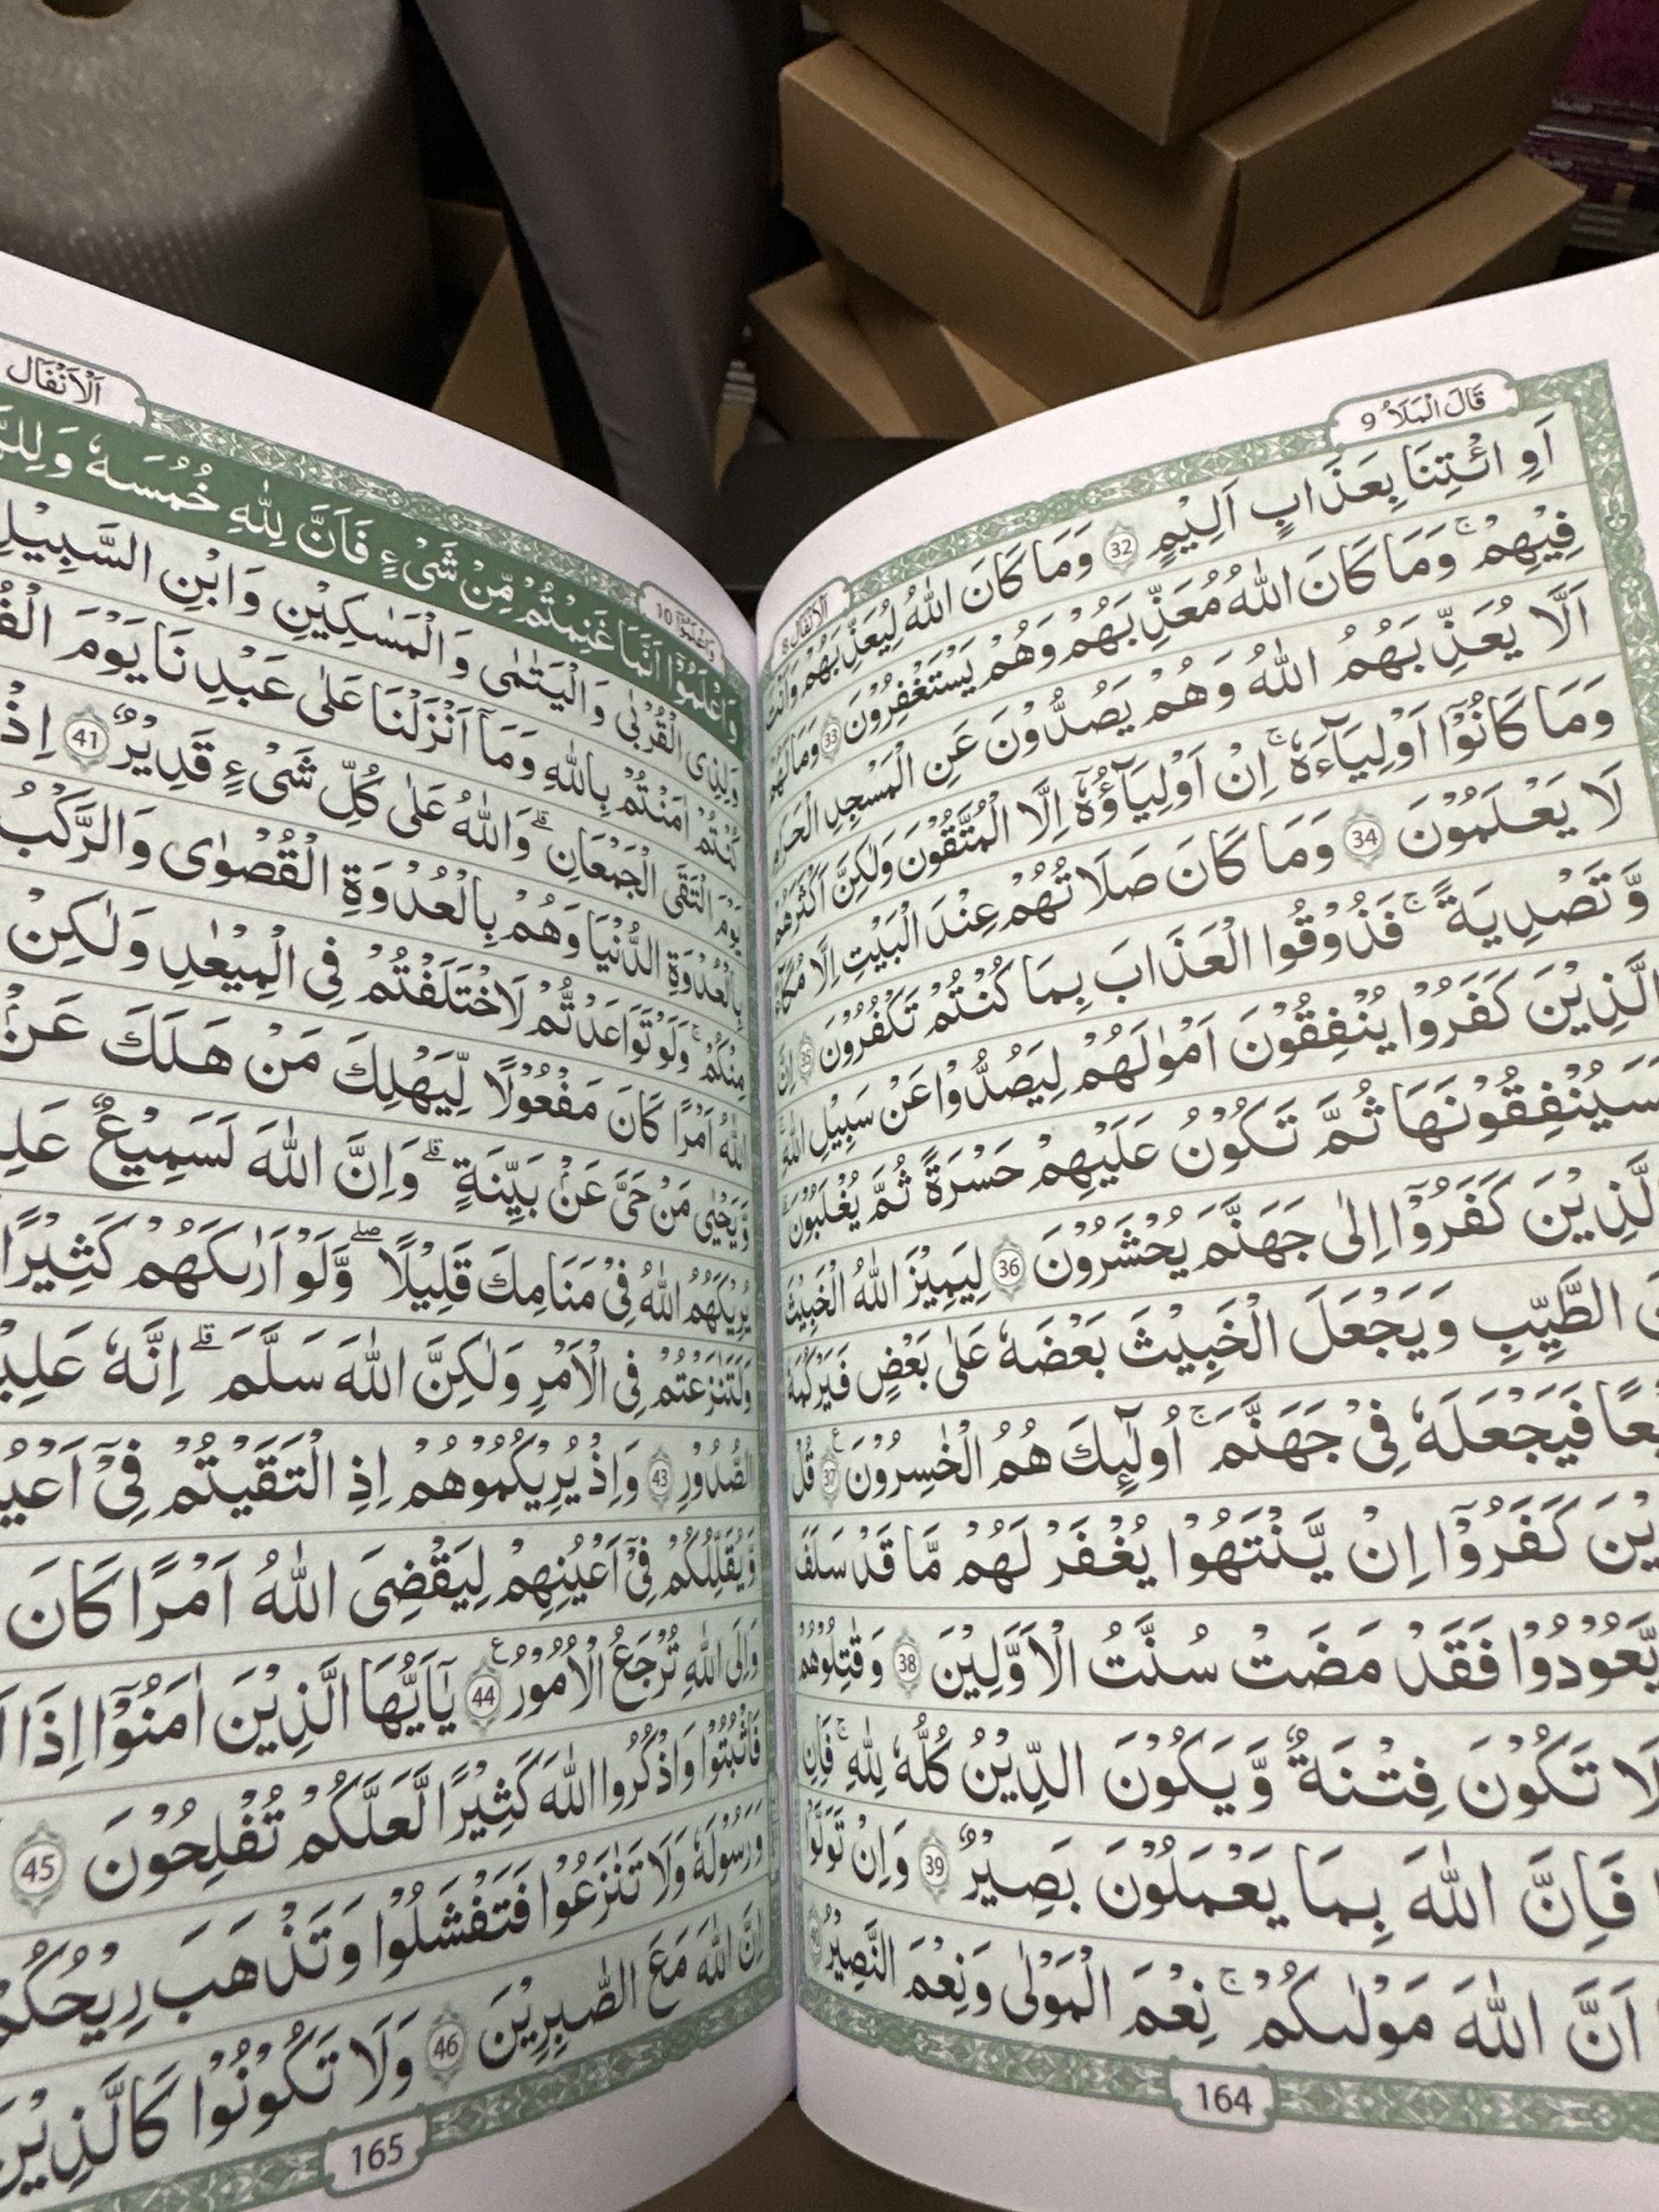 قَالَ الْمَلَاُ 9
اَلْاَنْفَال 8
اَوِ ائْتِنَا بِعَذَابٍ اَلِيْمٍ 32 وَمَا كَانَ اللّٰهُ لِيُعَذِّبَهُمْ وَاَنْتَ
فِيْهِمْ ۚ وَمَا كَانَ اللّٰهُ مُعَذِّبَهُمْ وَهُمْ يَسْتَغْفِرُوْنَ 33 وَمَا لَهُمْ
اَلَّا يُعَذِّبَهُمُ اللّٰهُ وَهُمْ يَصُدُّوْنَ عَنِ الْمَسْجِدِ الْحَرَامِ
وَمَا كَانُوْٓا اَوْلِيَآءَهٗ ۚ اِنْ اَوْلِيَآؤُهٗٓ اِلَّا الْمُتَّقُوْنَ وَلٰكِنَّ اَكْثَرَهُمْ
لَا يَعْلَمُوْنَ 34 وَمَا كَانَ صَلَاتُهُمْ عِنْدَ الْبَيْتِ اِلَّا مُكَآءً
وَّتَصْدِيَةً ۚ فَذُوْقُوا الْعَذَابَ بِمَا كُنْتُمْ تَكْفُرُوْنَ 35 اِنَّ
الَّذِيْنَ كَفَرُوْا يُنْفِقُوْنَ اَمْوٰلَهُمْ لِيَصُدُّوْا عَنْ سَبِيْلِ اللّٰهِ
سَيُنْفِقُوْنَهَا ثُمَّ تَكُوْنُ عَلَيْهِمْ حَسْرَةً ثُمَّ يُغْلَبُوْنَ
الَّذِيْنَ كَفَرُوْٓا اِلٰى جَهَنَّمَ يُحْشَرُوْنَ 36 لِيَمِيْزَ اللّٰهُ الْخَبِيْثَ
الطَّيِّبِ وَيَجْعَلَ الْخَبِيْثَ بَعْضَهٗ عَلٰى بَعْضٍ فَيَرْكُمَهٗ
فَيَجْعَلَهٗ فِيْ جَهَنَّمَ ۚ اُولٰٓئِكَ هُمُ الْخٰسِرُوْنَ 37 قُلْ
كَفَرُوْٓا اِنْ يَّنْتَهُوْا يُغْفَرْ لَهُمْ مَّا قَدْ سَلَفَ
يَّعُوْدُوْا فَقَدْ مَضَتْ سُنَّتُ الْاَوَّلِيْنَ 38 وَقٰتِلُوْهُمْ
لَا تَكُوْنَ فِتْنَةٌ وَّيَكُوْنَ الدِّيْنُ كُلُّهٗ لِلّٰهِ ۚ فَاِنِ
فَاِنَّ اللّٰهَ بِمَا يَعْمَلُوْنَ بَصِيْرٌ 39 وَاِنْ تَوَلَّوْا
اَنَّ اللّٰهَ مَوْلٰىكُمْ ۚ نِعْمَ الْمَوْلٰى وَنِعْمَ النَّصِيْرُ 40
164
وَاعْلَمُوْٓا 10
اَلْاَنْفَال
وَاعْلَمُوْٓا اَنَّمَا غَنِمْتُمْ مِّنْ شَيْءٍ فَاَنَّ لِلّٰهِ خُمُسَهٗ
وَلِذِى الْقُرْبٰى وَالْيَتٰمٰى وَالْمَسٰكِيْنِ وَابْنِ السَّبِيْلِ
كُنْتُمْ اٰمَنْتُمْ بِاللّٰهِ وَمَآ اَنْزَلْنَا عَلٰى عَبْدِنَا يَوْمَ
يَوْمَ الْتَقَى الْجَمْعَانِ ۗ وَاللّٰهُ عَلٰى كُلِّ شَيْءٍ قَدِيْرٌ 41 اِذْ
بِالْعُدْوَةِ الدُّنْيَا وَهُمْ بِالْعُدْوَةِ الْقُصْوٰى وَالرَّكْبُ
مِنْكُمْ ۚ وَلَوْ تَوَاعَدْتُّمْ لَاخْتَلَفْتُمْ فِى الْمِيْعٰدِ وَلٰكِنْ
اللّٰهُ اَمْرًا كَانَ مَفْعُوْلًا لِّيَهْلِكَ مَنْ هَلَكَ عَنْ
وَّيَحْيٰى مَنْ حَيَّ عَنْ بَيِّنَةٍ ۗ وَاِنَّ اللّٰهَ لَسَمِيْعٌ
يُرِيْكَهُمُ اللّٰهُ فِيْ مَنَامِكَ قَلِيْلًا ۖ وَّلَوْ اَرٰىكَهُمْ كَثِيْرًا
وَلَتَنٰزَعْتُمْ فِى الْاَمْرِ وَلٰكِنَّ اللّٰهَ سَلَّمَ ۗ اِنَّهٗ
الصُّدُوْرِ 43 وَاِذْ يُرِيْكُمُوْهُمْ اِذِ الْتَقَيْتُمْ فِيْٓ
وَّيُقَلِّلُكُمْ فِيْٓ اَعْيُنِهِمْ لِيَقْضِيَ اللّٰهُ اَمْرًا كَانَ
وَاِلَى اللّٰهِ تُرْجَعُ الْاُمُوْرُ 44 يٰٓاَيُّهَا الَّذِيْنَ اٰمَنُوْٓا اِذَا
فَاثْبُتُوْا وَاذْكُرُوا اللّٰهَ كَثِيْرًا لَّعَلَّكُمْ تُفْلِحُوْنَ 45
وَرَسُوْلَهٗ وَلَا تَنٰزَعُوْا فَتَفْشَلُوْا وَتَذْهَبَ رِيْحُكُمْ
اِنَّ اللّٰهَ مَعَ الصّٰبِرِيْنَ 46 وَلَا تَكُوْنُوْا كَالَّذِيْنَ
165